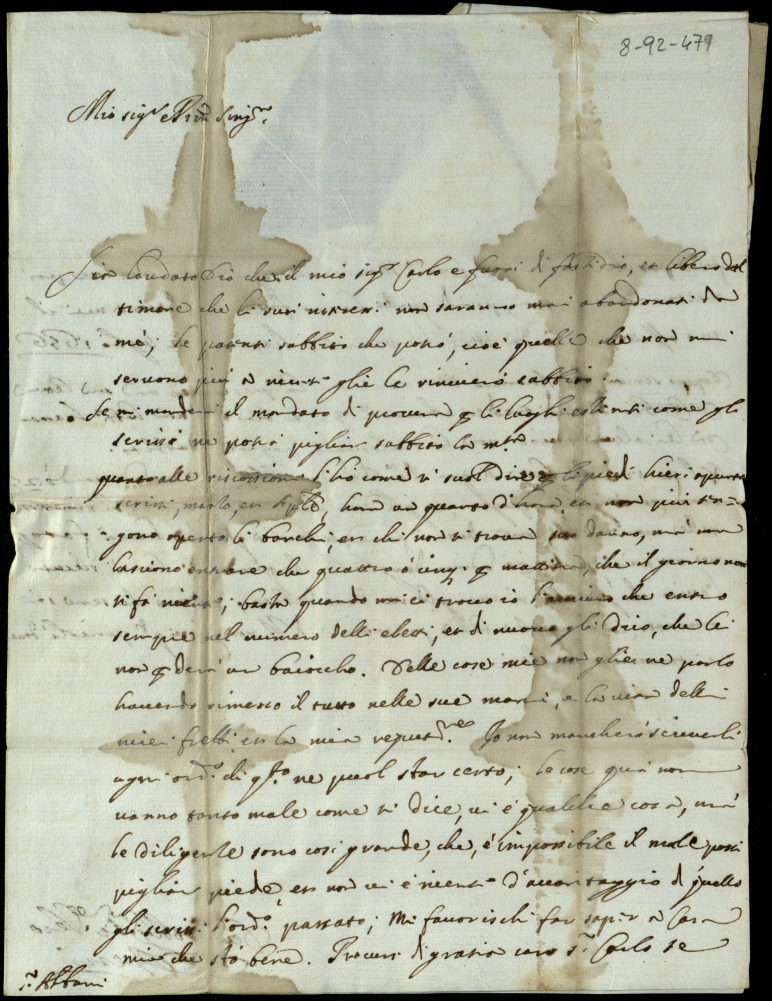 8-92-479
Mio sigr e Prōn Singr.
Sia lodato Dio che il mio sigr Carlo e fuori di fastidio, et libero dal
timore che li suoi interessi non saranno mai abandonati da
mé; le patenti subbito che potró, cioé quelle che non mi
servono più a niente glie le rinvieró subbito.
Se mi manderá il mandato di procura p li luoghi estinti come gli
scrissi ne potrá pigliar subbito la
quanto alle riscossione si suol dire li piedi hieri
scrissi, et hora un quarto d'hora, et non più ten=
gono aperto li banchi, et chi non si trova suo danno, má non
lasciono entrare che quattro ó cinq. p mattina, che il giorno non
si fá niente; basta quando mi ci trovo io che entro
sempre nel numero delli eletti, et di nuovo gli dico, che lei
non pderá un baioccho. Delle cose mie non gliene parlo
havendo rimesso il tutto nelle sue mani, e la vita delli
miei et la mia reputne. Io non mancheró scriverli
ogni ordo. di qsto ne puol star certo; le cose quá non
vanno tanto male come si dice, vi é qualche cosa, má
le diligenze sono cosi grande, che, é impossibile il male possi
pigliar piede, et non vi é niente d'avantaggio di quello
gli scrissi l'ordo. passato; Mi favorischi far saper a Casa
mia che stó bene. Procuri di gratia caro Sr. Carlo se
Sr. Abbani